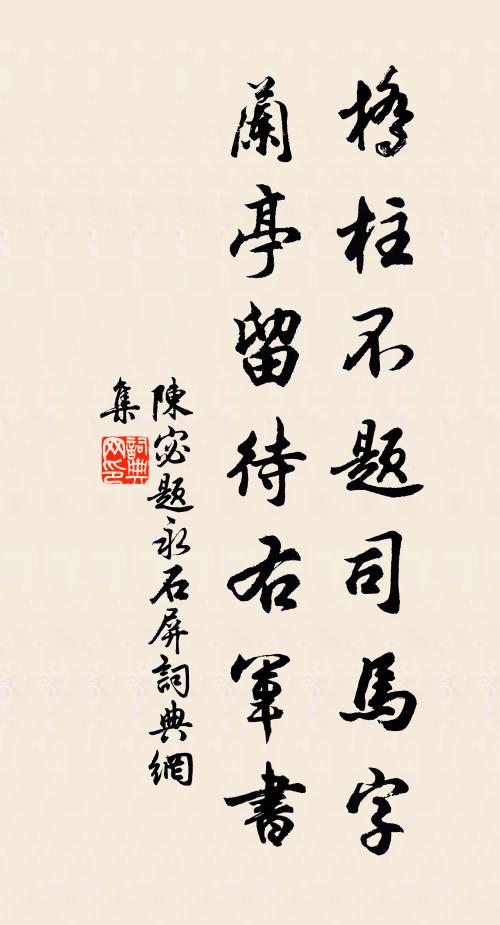 橋柱不題司馬字
蘭亭留待右軍書
陳宓題永石屏詞典網
集
詞典網印